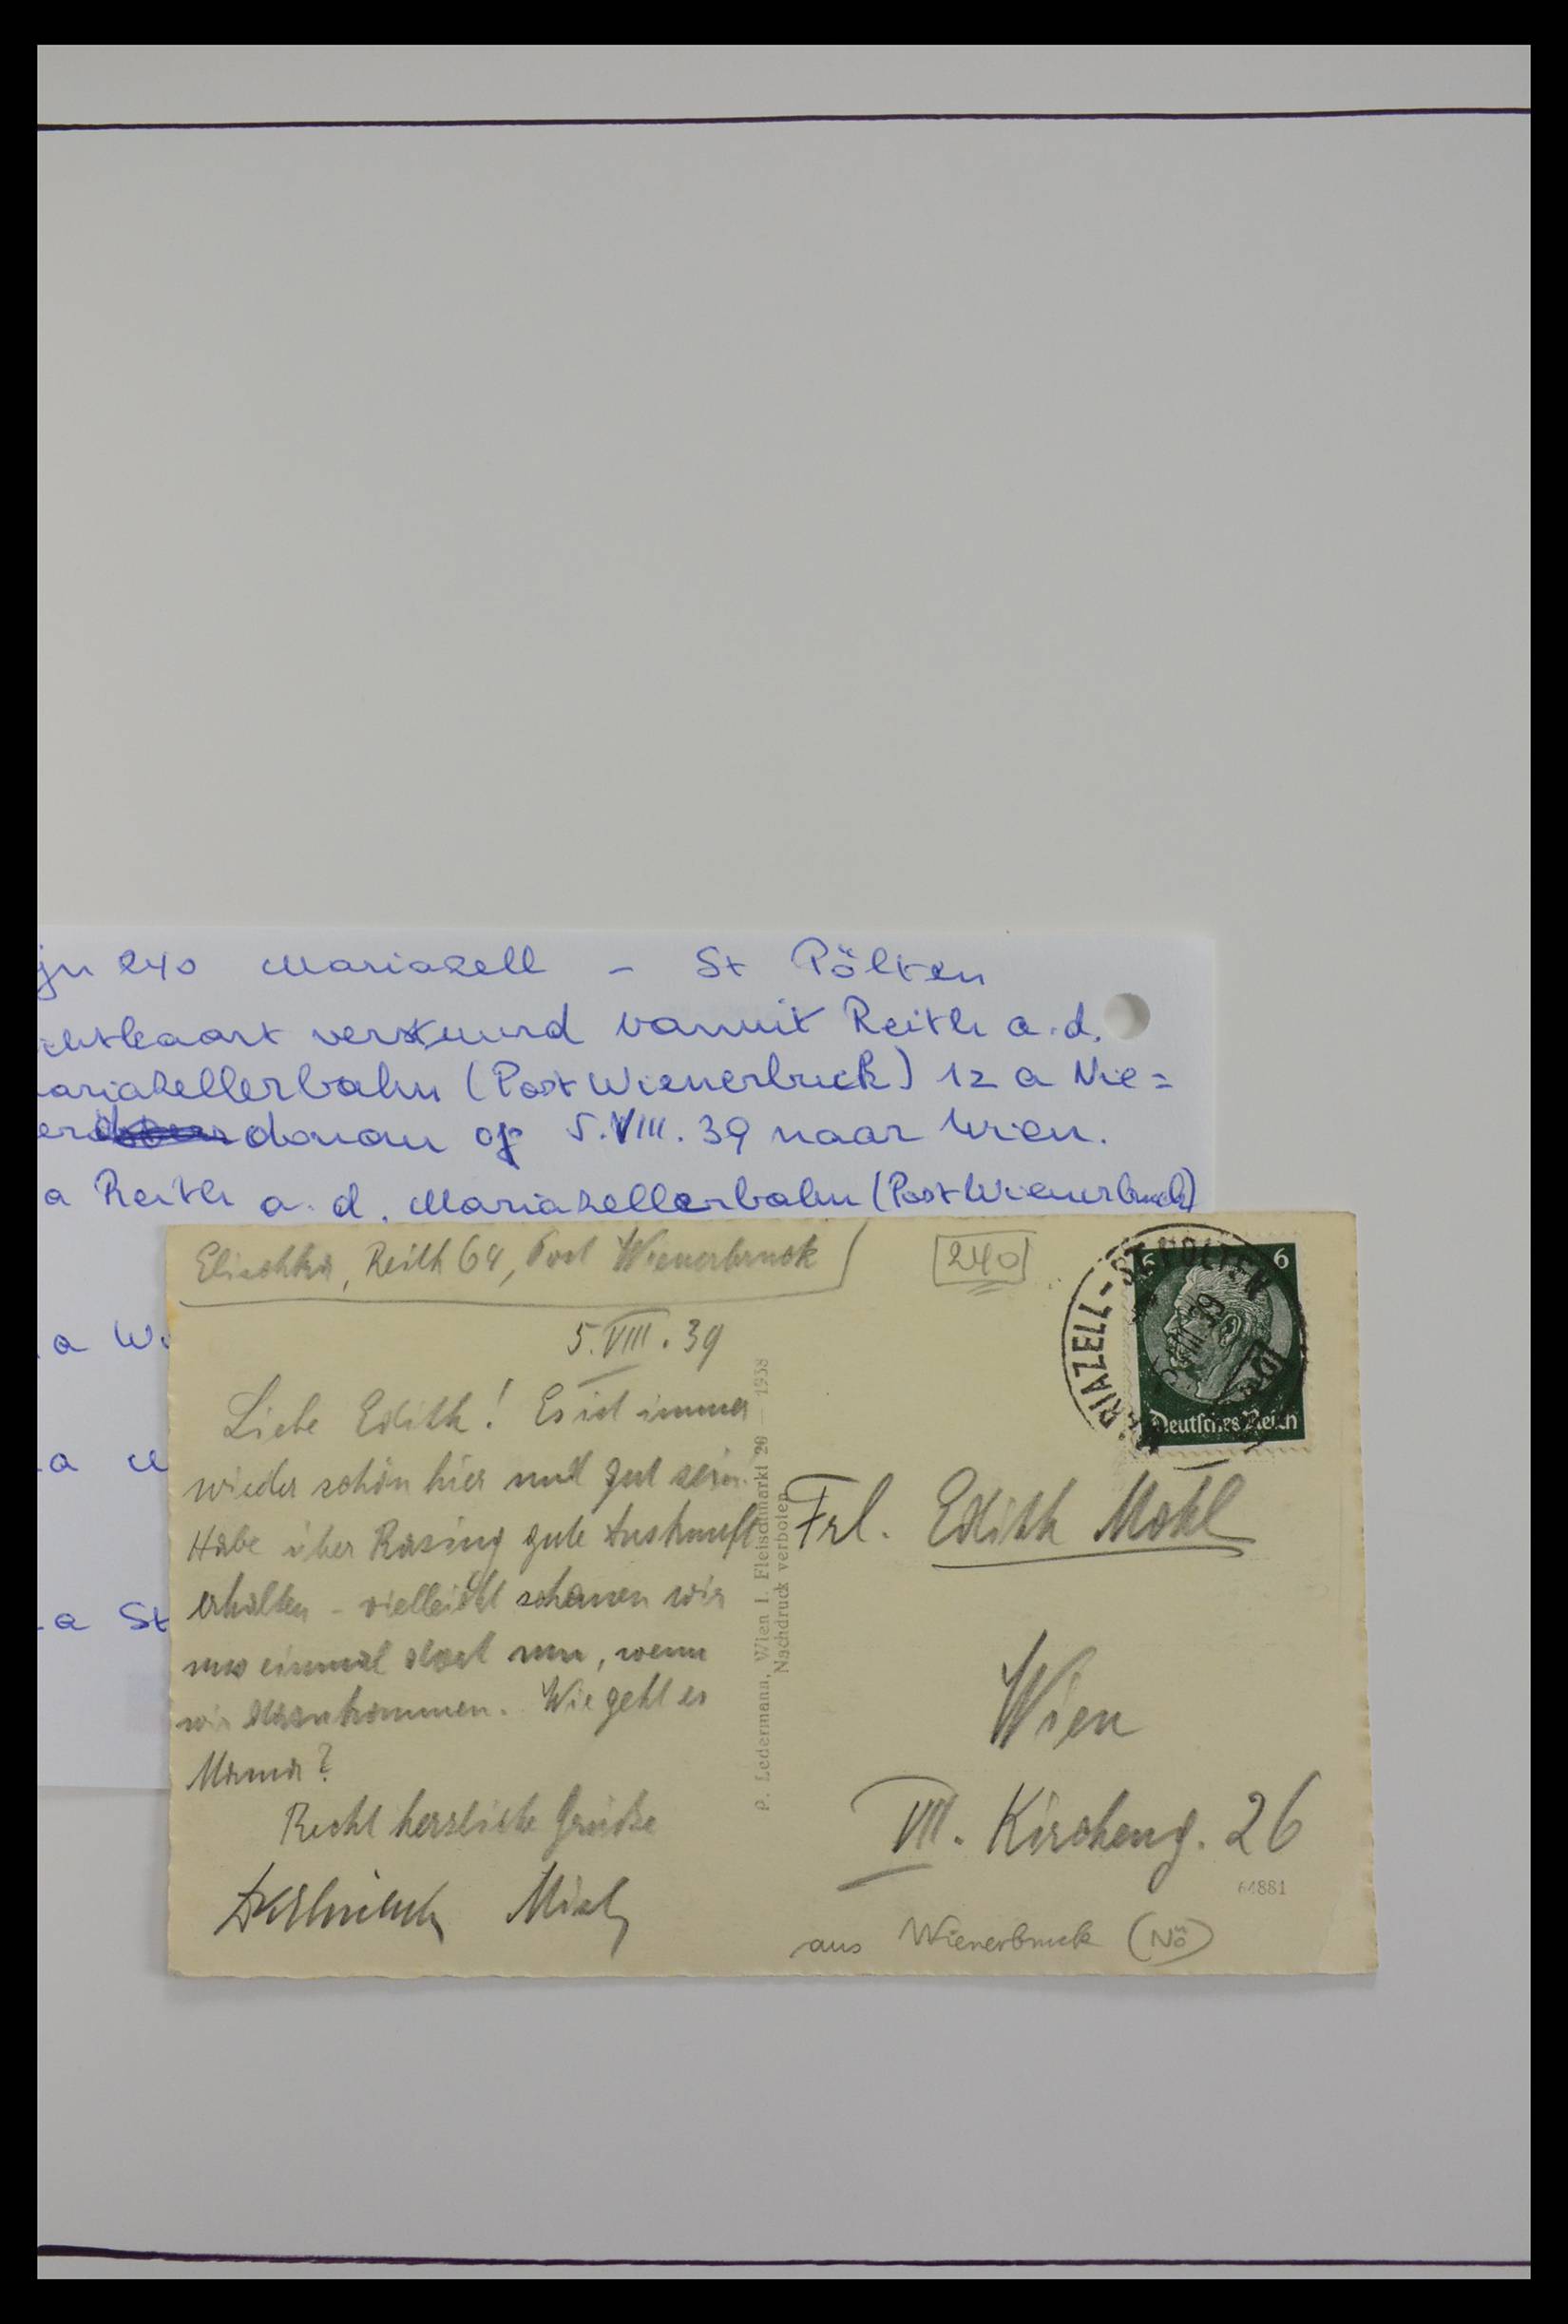 jn 240 Mariazell - St Pölten
chtkaart verstuurd vanuit Reith a.d.
ariazellerbahn (Post Wienerbruck) 12 a Nie=
er donau op 5.VIII.39 naar Wien.
a Reith a.d. Mariazellerbahn (Post Wienerbruck)
a Wi
a M
a St
Elischka, Reith 64, Post Wienerbruck
240
MARIAZELL - ST. PÖLTEN
VIII 39
6 6
Deutsches Reich
5.VIII.39
Liebe Edith! Es ist immer
wieder schön hier und gut sein.
Habe über Rasing gute Auskunft
erhalten - vielleicht schauen wir
uns einmal dort um, wenn
wir dazukommen. Wie geht es
Mama?
Recht herzliche Grüße
Mizzi
P. Ledermann, Wien I. Fleischmarkt 20 - 1938
Nachdruck verboten
Frl. Edith Mohl
Wien
VII. Kircheng. 26
64881
aus Wienerbruck (NÖ)